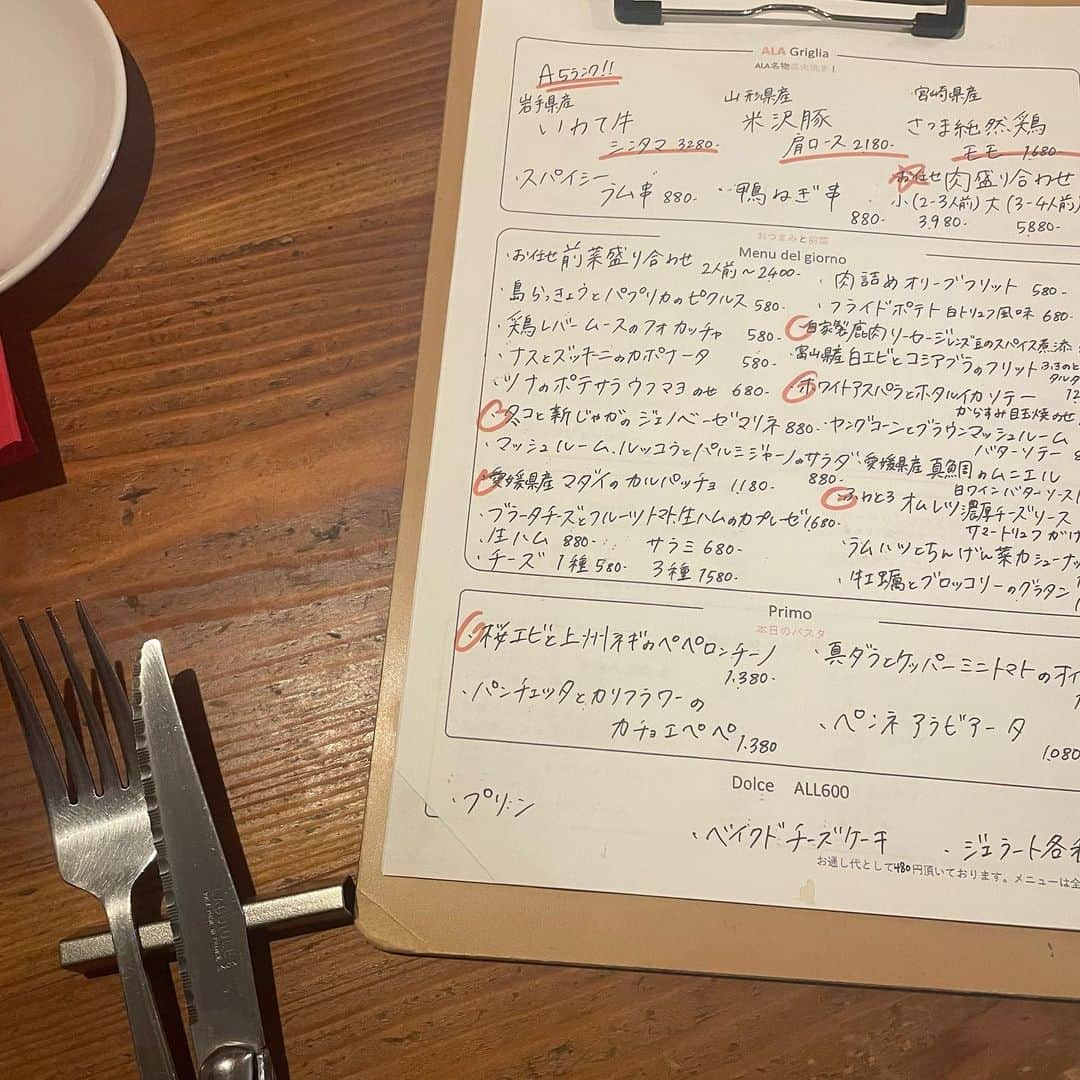 ALA Griglia
ALA名物炭火焼き!
A5ランク!!
岩手県産
いわて牛
シンタマ 3280-
山形県産
米沢豚
肩ロース 2180-
宮崎県産
さつま純然鶏
モモ 1,680-
・スパイシー
ラム串 880-
・鴨ねぎ串
880-
・お任せ肉盛り合わせ
小(2-3人前) 大(3-4人前)
3,980- 5880-
おつまみと前菜
Menu del giorno
・お任せ 前菜盛り合わせ
2人前〜2400-
・島らっきょうとパプリカのピクルス 580-
・鶏レバームースのフォカッチャ 580-
・ナスとズッキーニのカポナータ 580-
・ツナのポテサラ ウフマヨのせ 680-
・タコと新じゃがのジェノベーゼマリネ 880-
・マッシュルーム、ルッコラとパルミジャーノのサラダ
880-
・愛媛県産マダイのカルパッチョ 1,180-
・ブラータチーズとフルーツトマト生ハムのカプレーゼ 1,680-
・生ハム 880- ・サラミ 680-
・チーズ 1種 580- 3種 1580-
・肉詰めオリーブフリット 580-
・フライドポテト 白トリュフ風味 680-
・自家製鹿肉ソーセージ レンズ豆のスパイス煮添
・富山県産白エビとコシアブラのフリット ふきのと
タルタ
・ホワイトアスパラとホタルイカソテー
からすみ目玉焼のせ
・ヤングコーンとブラウンマッシュルーム
バターソテー
・愛媛県産真鯛のムニエル
白ワインバターソース
・ふわとろオムレツ濃厚チーズソース
サマートリュフがけ
・ラムハツとちんげん菜カシューナッ
・牡蠣とブロッコリーのグラタン
Primo
本日のパスタ
・桜エビと上州ネギのペペロンチーノ
1,380-
・パンチェッタとカリフラワーの
カチョエペペ 1,380
・真ダラとケッパーミニトマトのオイ
・ペンネ アラビアータ
1,080
Dolce ALL600
・プリン
・ベイクドチーズケーキ
・ジェラート各種
お通し代として480円頂いております。メニューは全
LAGUIOLE